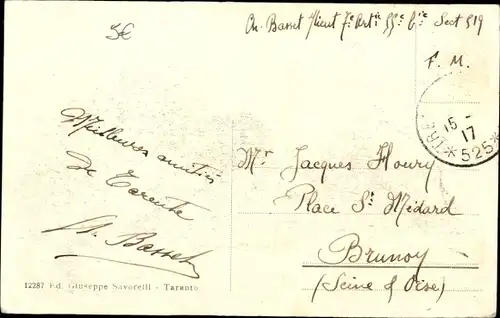 Ch. Basset Lieut 7e Artie 55e Bie Sect 519
F. M.
15 -
17
* 525 *
Meilleures amitiés
de Tarente
Ch. Basset
Mr. Jacques Floury
Place St Médard
Brunoy
(Seine & Oise)
12287 Ed. Giuseppe Savorelli - Taranto